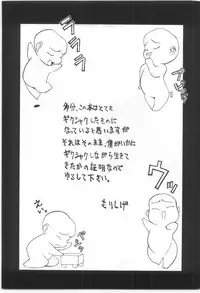 ララララ
ブ〜ん
多分、この本はとても
ギクシャクしたものに
なっていると思いますが
それはそのまま、僕がいかに
ギクシャクしながら生きて
きたかの証明なので
ゆるして下さい。
もりしげ
ウッ
えい。